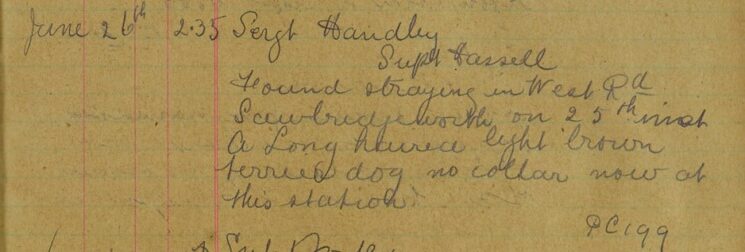 June 26th 2.35 Sergt Handley
Supt Hassell
Found straying in West Rd
Sawbridgeworth on 25th inst
A Long haired light brown
terrier dog no collar now at
this station.
PC 199